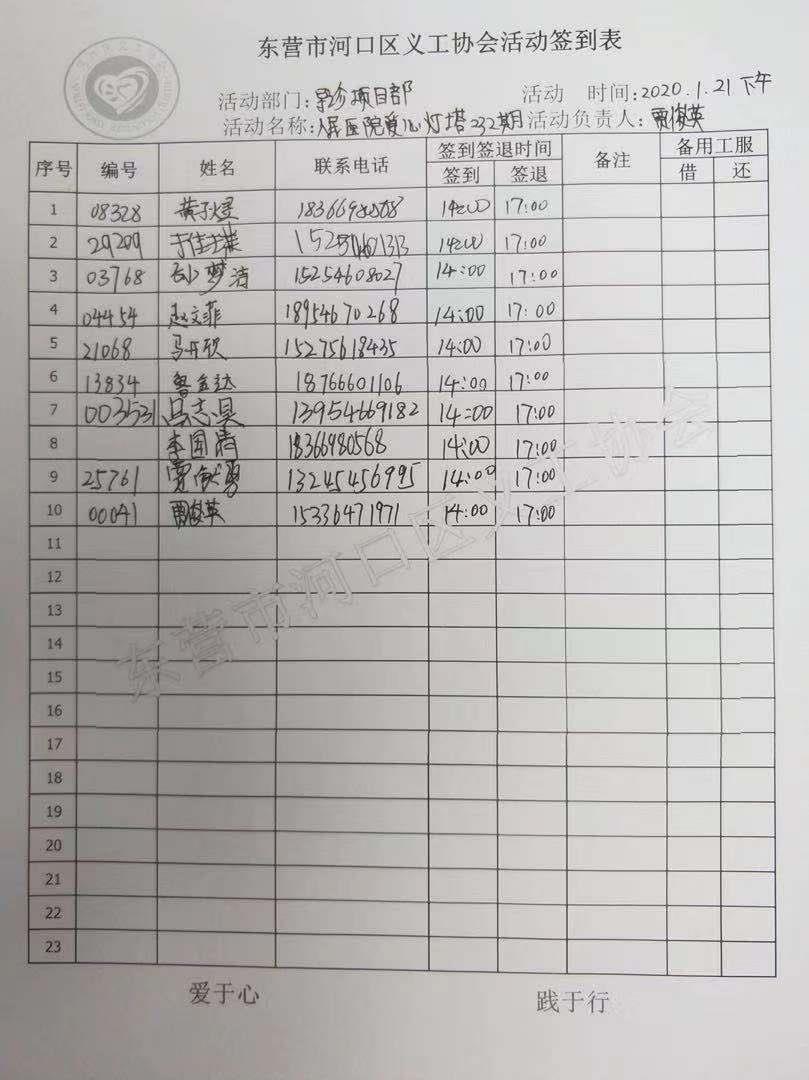 东营市河口区义工协会活动签到表
活动部门:导诊项目部 活动 时间:2020.1.21下午
活动名称:人民医院爱心灯塔232期 活动负责人:贾俊英
序号 编号 姓名 联系电话 签到签退时间 备注 备用工服
签到 签退 借 还
1 08328 黄子煜 18366980568 14:00 17:00
2 29299 于佳 14:00 17:00
3 03768 孙梦洁 15254608027 14:00 17:00
4 04454 赵文菲 18954670268 14:00 17:00
5 21068 马丹欣 15275618435 14:00 17:00
6 13834 鲁金达 18766601106 14:00 17:00
7 003531 冯志昊 13954669182 14:00 17:00
8 李国清 18366980568 14:00 17:00
9 25761 勇 13245456995 14:00 17:00
10 00041 贾俊英 15336471971 14:00 17:00
11
12
13
14
15
16
17
18
19
20
21
22
23
东营市河口区义工协会
爱于心 践于行